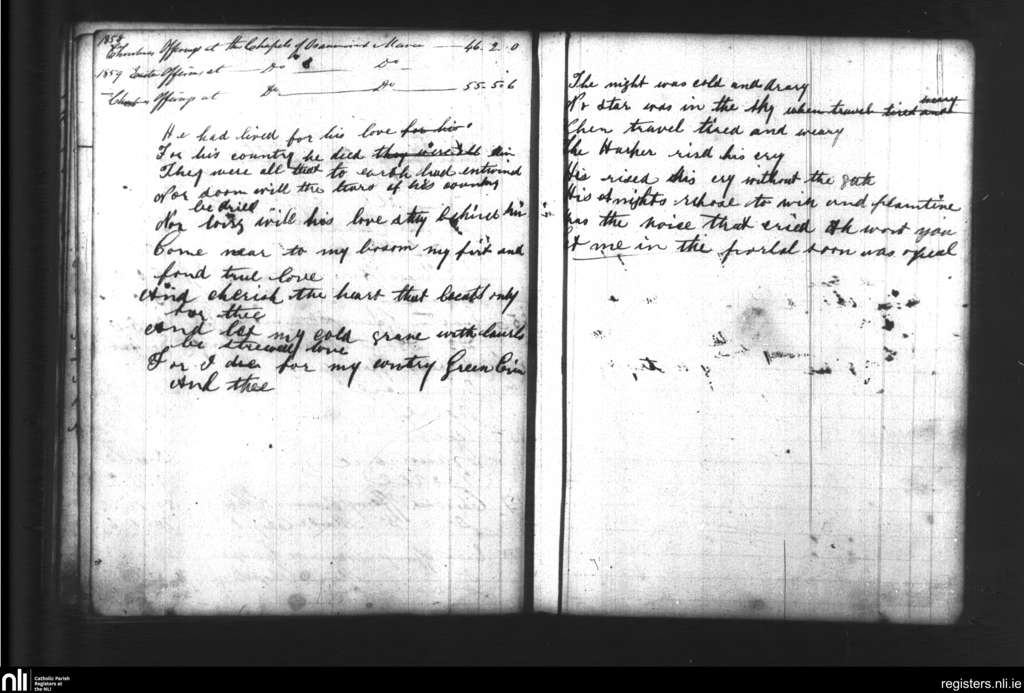 1858
Christmas Offerings at the Chapels of and Mara — 46. 2. 0
1859 Easter Offerings at — Do — 8 — Do —
— Offerings at Do — Do — 55. 5. 6
He had lived for his love for his
For his country he died they were all
They were all that to earth had entwind
Nor soon will the tears of his country
be dried
Nor long will his love stay behind him
Come near to my bosom my first and
fond true love
And cherish the heart that beats only
for thee
And let my cold grave with laurels
be strewed love
For I die for my contry Green Erin
And thee
The night was cold and drary
No star was in the sky when travel tired and weary
When travel tired and weary
The Harper risd his cry
He rised his cry without the gate
His nights to win and plaintive
was the voice that cried Ah wont you
let me in the portal soon was
nli
Catholic Parish
Registers at
the NLI
registers.nli.ie